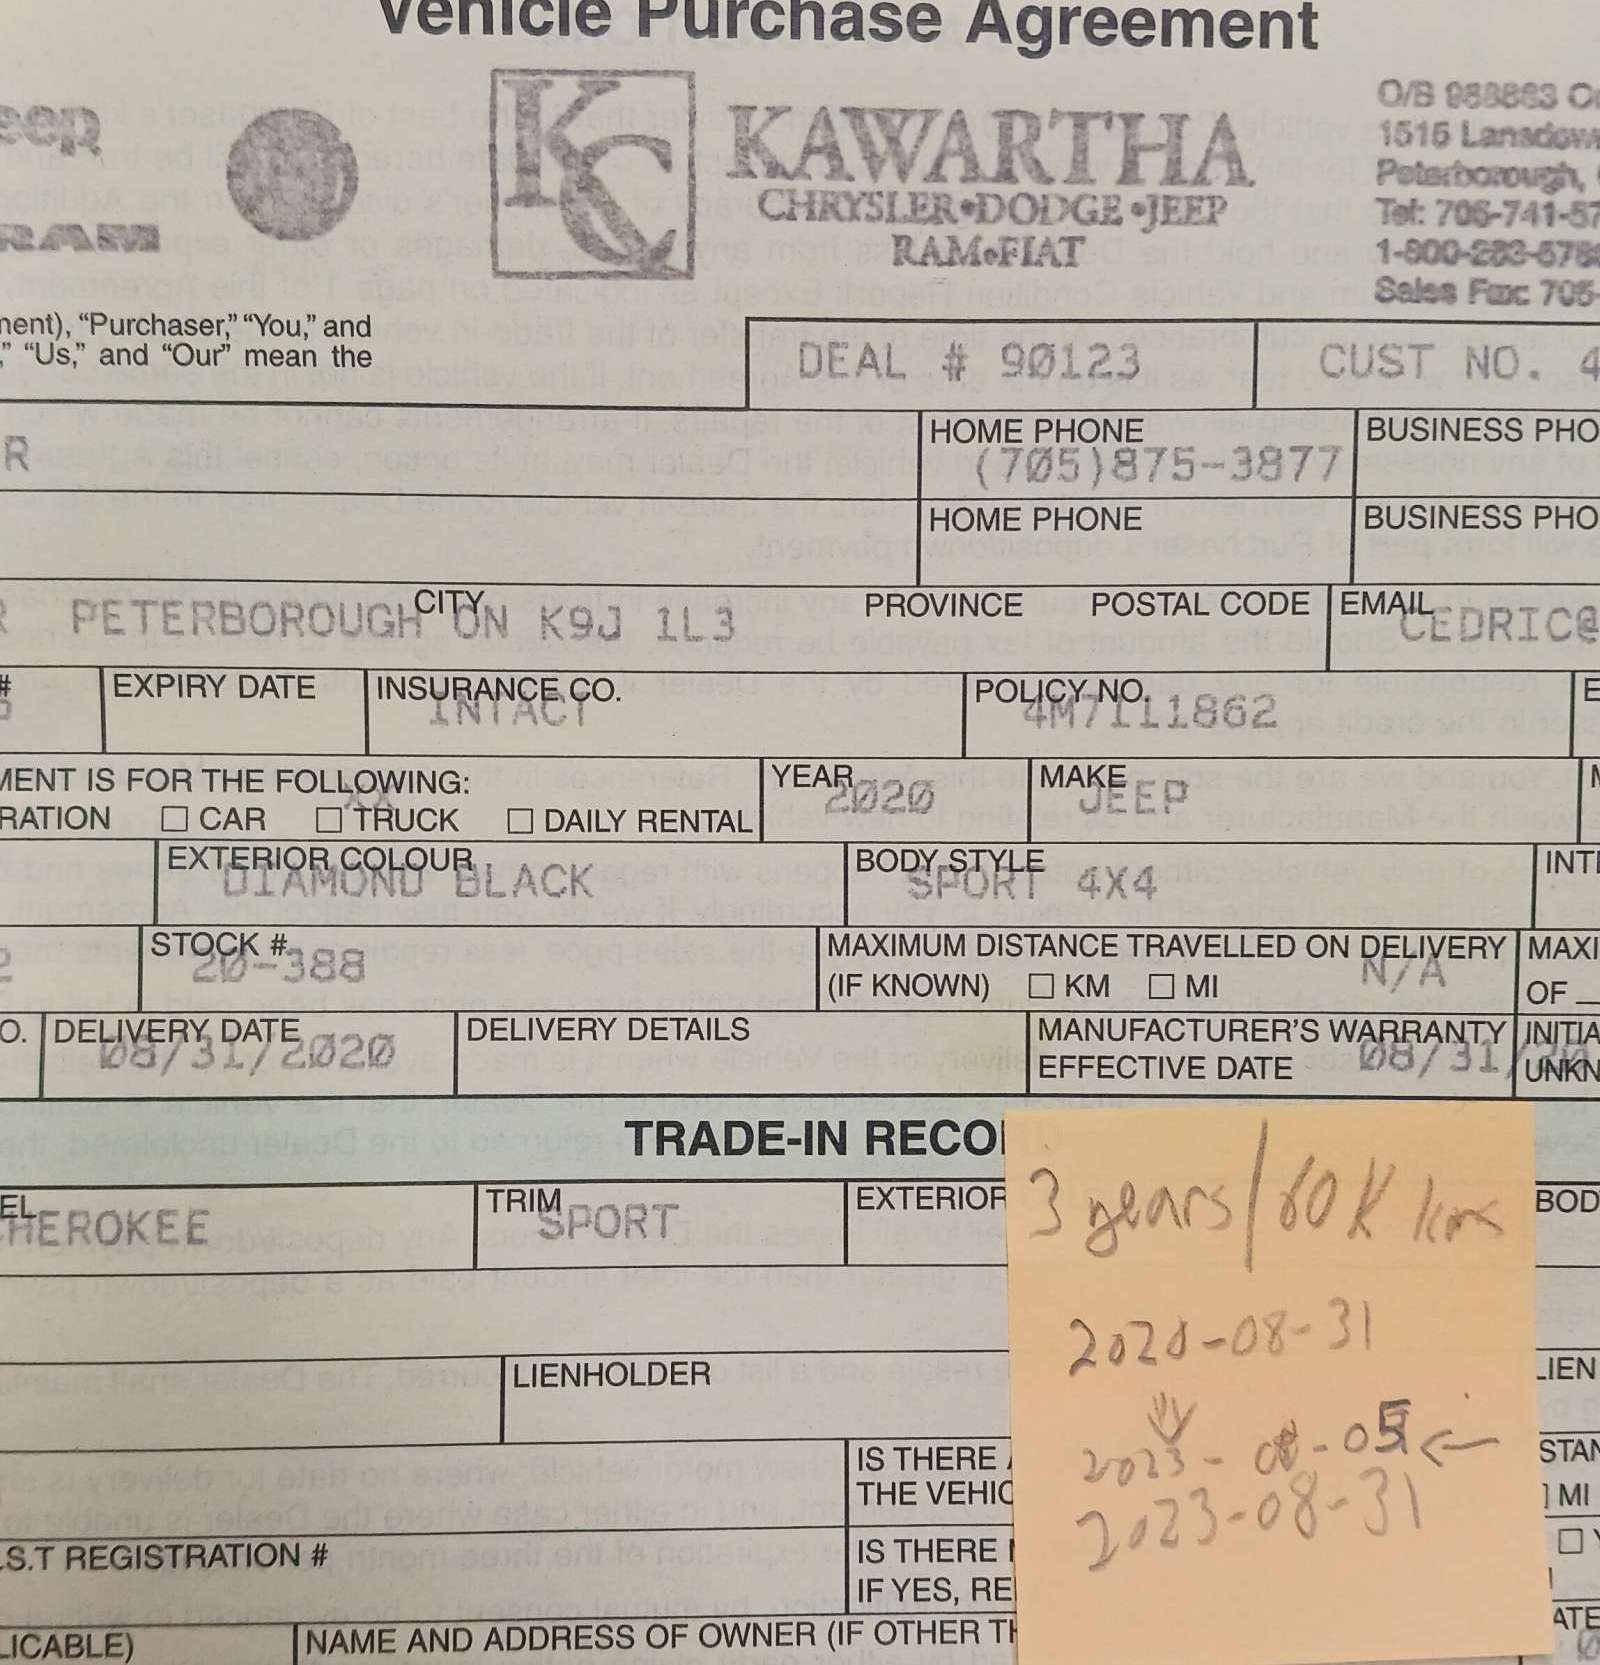 Vehicle Purchase Agreement
eep
RAM
KC
KAWARTHA
CHRYSLER•DODGE•JEEP
RAM•FIAT
O/B 988883 On
1515 Lansdow
Peterborough,
Tel: 705-741-57
1-800-283-578
Sales Fax: 705-
nent), “Purchaser,” “You,” and
,” “Us,” and “Our” mean the
DEAL # 90123
CUST NO. 4
R
HOME PHONE
(705)875-3877
BUSINESS PHO
HOME PHONE
BUSINESS PHO
CITY
PROVINCE
POSTAL CODE
EMAIL
R PETERBOROUGH ON K9J 1L3
CEDRIC@
#
EXPIRY DATE
INSURANCE CO.
INTACT
POLICY NO.
4M7111862
E
MENT IS FOR THE FOLLOWING:
XX
RATION CAR TRUCK DAILY RENTAL
YEAR
2020
MAKE
JEEP
M
EXTERIOR COLOUR
DIAMOND BLACK
BODY STYLE
SPORT 4X4
INTE
2
STOCK #
20-388
MAXIMUM DISTANCE TRAVELLED ON DELIVERY
(IF KNOWN) KM MI
N/A
MAXI
OF
O.
DELIVERY DATE
08/31/2020
DELIVERY DETAILS
MANUFACTURER’S WARRANTY
EFFECTIVE DATE
08/31/20
INITIA
UNKN
TRADE-IN RECO
3 years/60K km
2020-08-31
2023- -05
2023-08-31
EL
HEROKEE
TRIM
SPORT
EXTERIOR
BOD
LIENHOLDER
LIEN
IS THERE
THE VEHIC
STAN
MI
.S.T REGISTRATION #
IS THERE
IF YES, RE
Y
LICABLE)
NAME AND ADDRESS OF OWNER (IF OTHER TH
ATE